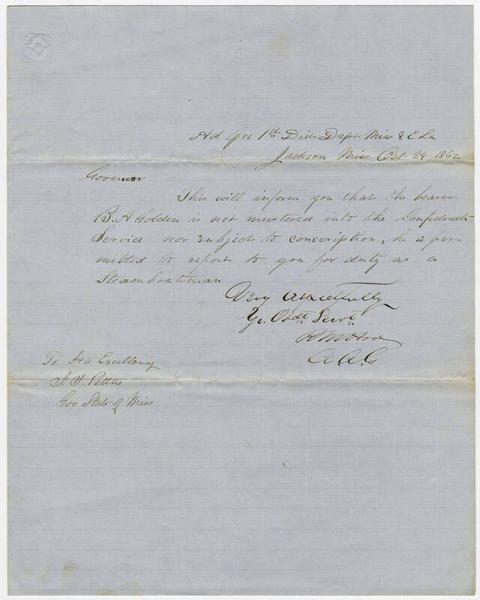 Hd Qrs 1st Dist Dept Miss & E La
Jackson Miss Oct 29 1862
Governor
This will inform you that the bearer
B. A Golden is not mustered into the Confederate
Service nor subject to conscription, he is per-
mitted to report to you for duty as a
Steamboatman
Very Respectfully
Yr. Obdt Servt
A. A. G
To His Excellency
J. J. Pettus
Gov State of Miss